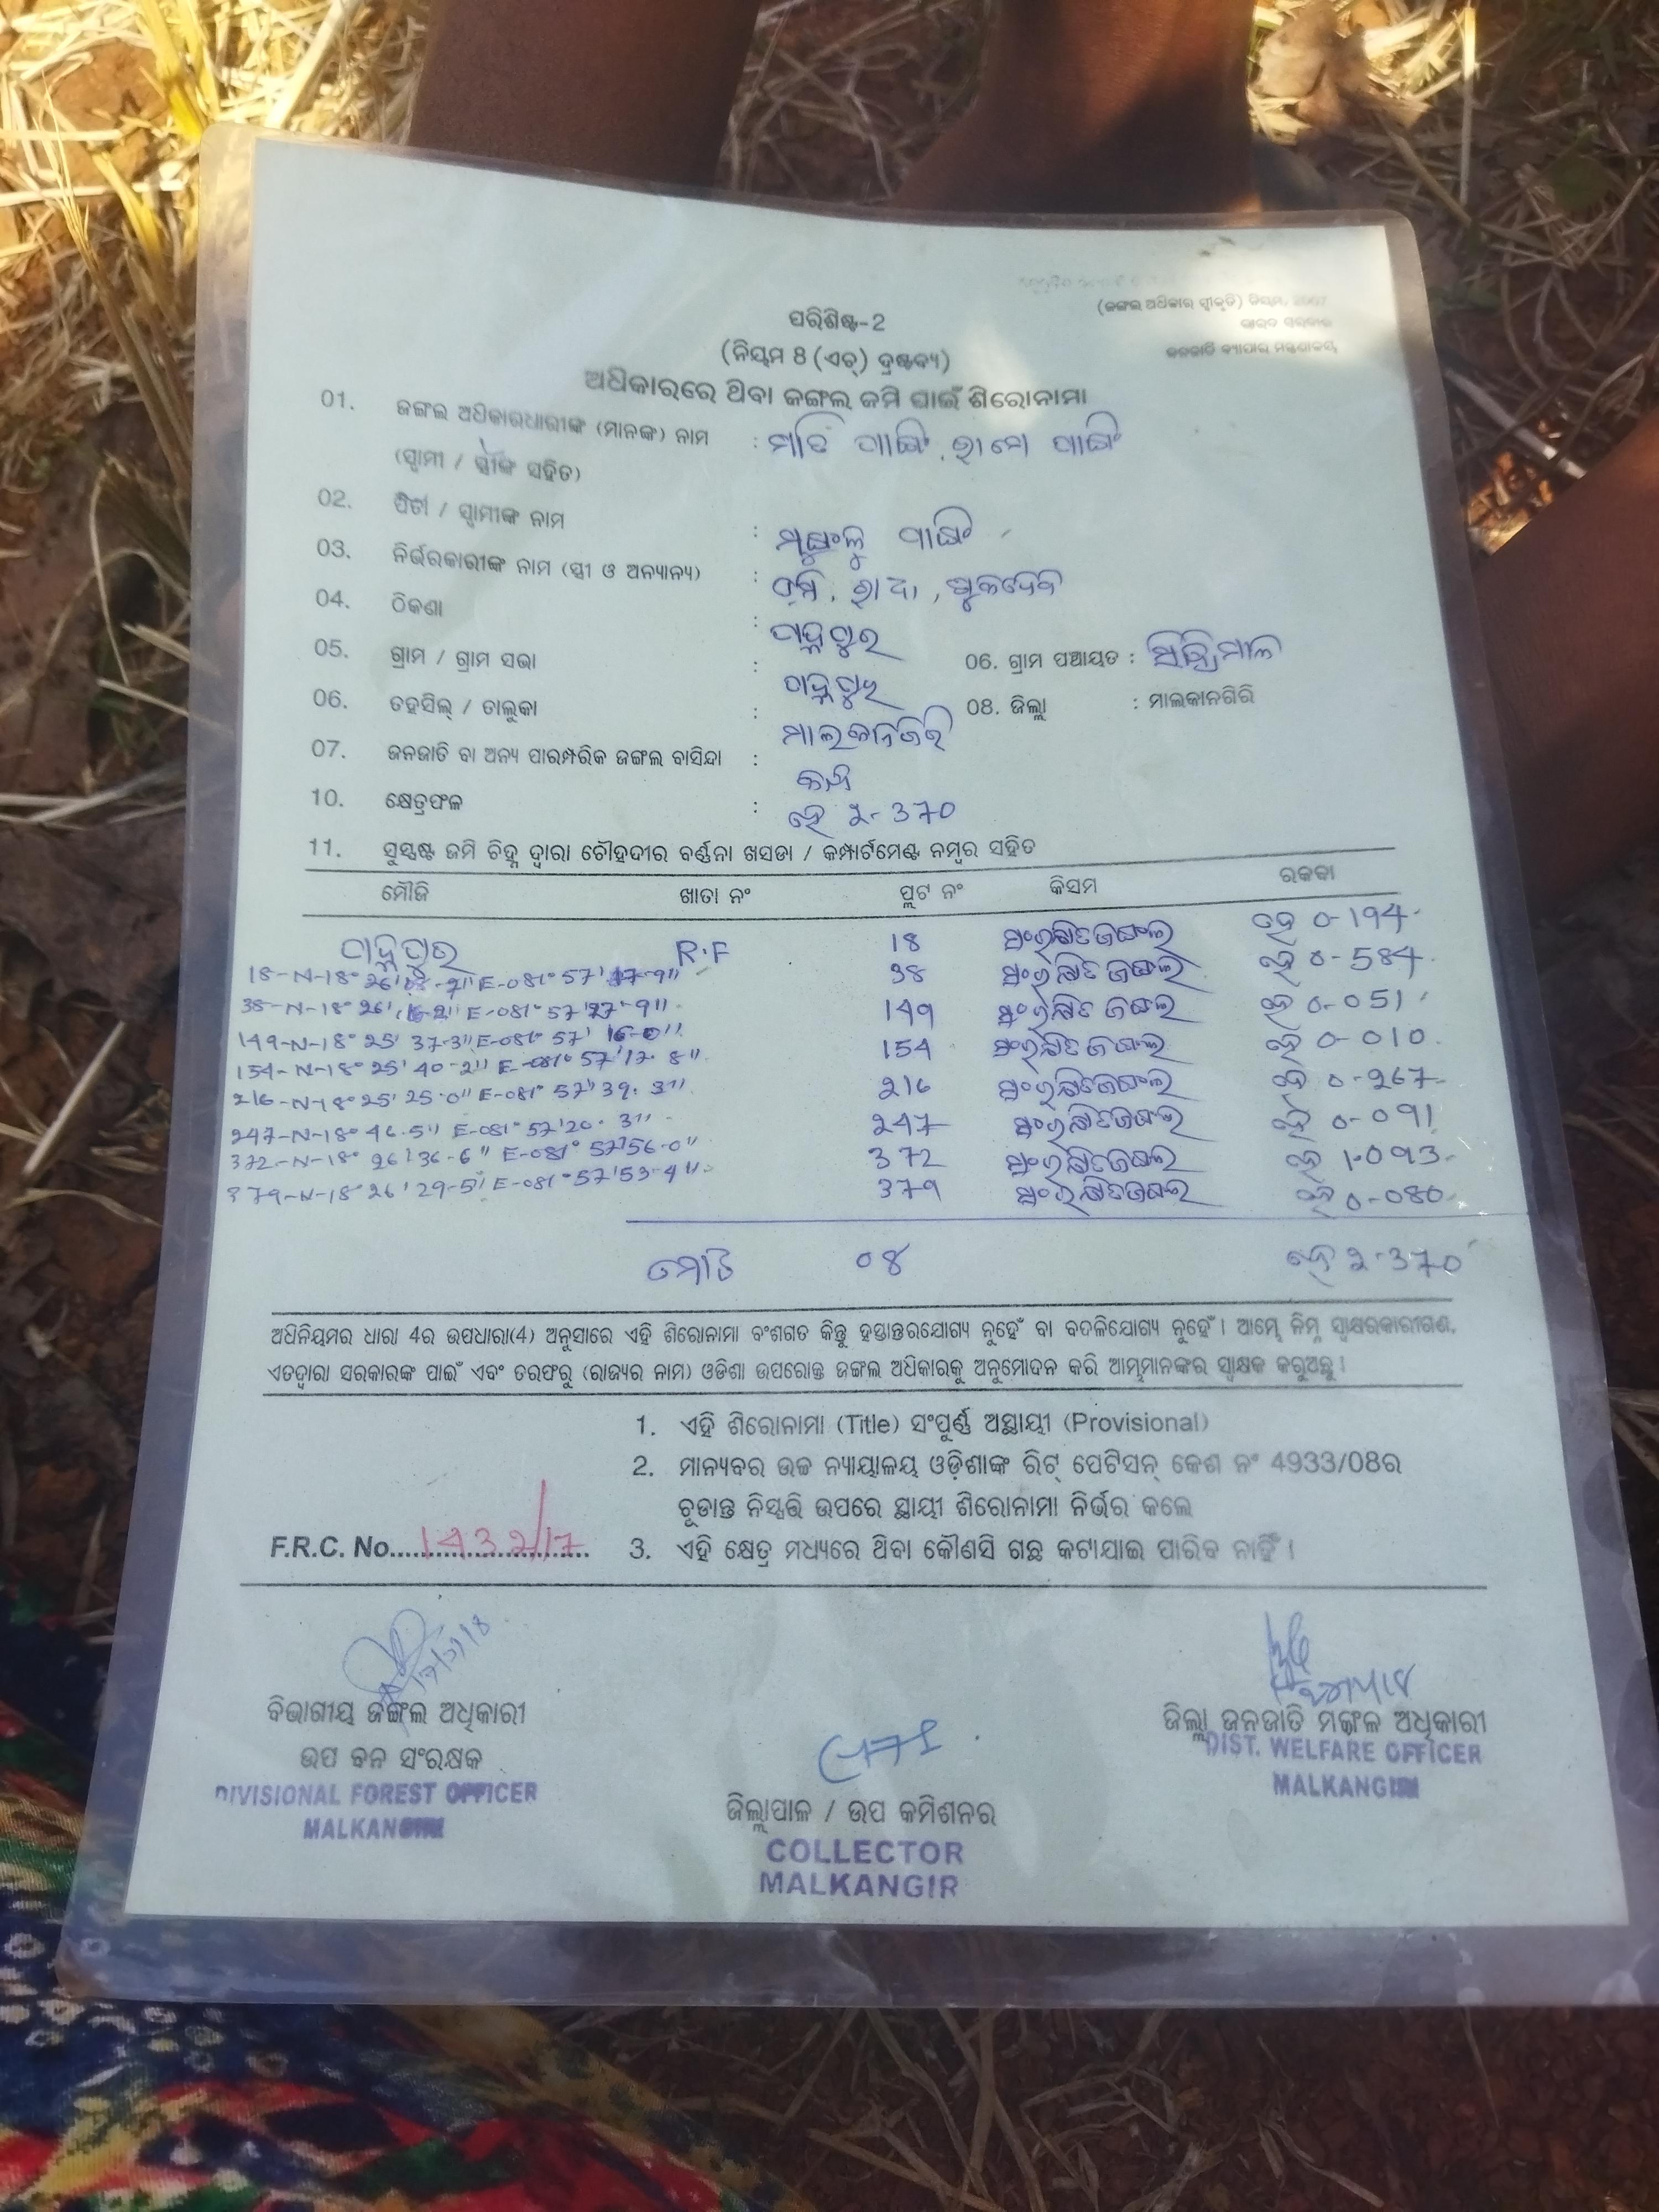 (ଜଙ୍ଗଲ ଅଧିକାର ସ୍ୱୀକୃତି) ନିୟମ, 2007
ଭାରତ ସରକାର
ଜନଜାତି ବ୍ୟାପାର ମନ୍ତ୍ରଣାଳୟ
ପରିଶିଷ୍ଟ-2
(ନିୟମ 8 (ଏଚ୍) ଦ୍ରଷ୍ଟବ୍ୟ)
ଅଧିକାରରେ ଥିବା ଜଙ୍ଗଲ ଜମି ପାଇଁ ଶିରୋନାମା
01. ଜଙ୍ଗଲ ଅଧିକାରଧାରୀଙ୍କ (ମାନଙ୍କ) ନାମ :
(ସ୍ୱାମୀ / ସ୍ତ୍ରୀଙ୍କ ସହିତ)
02. ପିତା / ସ୍ୱାମୀଙ୍କ ନାମ :
03. ନିର୍ଭରକାରୀଙ୍କ ନାମ (ସ୍ତ୍ରୀ ଓ ଅନ୍ୟାନ୍ୟ) :
04. ଠିକଣା :
05. ଗ୍ରାମ / ଗ୍ରାମ ସଭା : 06. ଗ୍ରାମ ପଞ୍ଚାୟତ :
06. ତହସିଲ୍ / ତାଲୁକା : ମାଲକାନଗିରି 08. ଜିଲ୍ଲା : ମାଲକାନଗିରି
07. ଜନଜାତି ବା ଅନ୍ୟ ପାରମ୍ପରିକ ଜଙ୍ଗଲ ବାସିନ୍ଦା :
10. କ୍ଷେତ୍ରଫଳ : ହେ ୨-370
11. ସୁସ୍ପଷ୍ଟ ଜମି ଚିହ୍ନ ଦ୍ୱାରା ଚୌହଦୀର ବର୍ଣ୍ଣନା ଖସଡା / କମ୍ପାର୍ଟମେଣ୍ଟ ନମ୍ବର ସହିତ
ମୌଜି ଖାତା ନଂ ପ୍ଲଟ ନଂ କିସମ ରକବା
R.F 18 ସଂରକ୍ଷିତ ଜଙ୍ଗଲ ହେ 0-194
18-N-18° 26' E-081° 57' 17-9"
38 ସଂରକ୍ଷିତ ଜଙ୍ଗଲ ହେ 0-584
38-N-18° 26' 16-2" E-081° 57' 27-9"
149 ସଂରକ୍ଷିତ ଜଙ୍ଗଲ ହେ 0-051
149-N-18° 25' 37-3" E-081° 57' 16-0"
154 ସଂରକ୍ଷିତ ଜଙ୍ଗଲ ହେ 0-010
154-N-18° 25' 40-2" E-081° 57' 17.8"
216 ସଂରକ୍ଷିତ ଜଙ୍ଗଲ ହେ 0-267
216-N-18° 25' 25-0" E-081° 57' 39.3"
247 ସଂରକ୍ଷିତ ଜଙ୍ଗଲ ହେ 0-091
247-N-18° 46-5" E-081° 57' 20.3"
372 ସଂରକ୍ଷିତ ଜଙ୍ଗଲ ହେ 1-093
372-N-18° 26' 36-6" E-081° 57' 56-0"
379 ସଂରକ୍ଷିତ ଜଙ୍ଗଲ ହେ 0-080
379-N-18° 26' 29-5" E-081° 57' 53-4"
ମୋଟ ୦୪ ହେ ୨-370
ଅଧିନିୟମର ଧାରା 4ର ଉପଧାରା(4) ଅନୁସାରେ ଏହି ଶିରୋନାମା ବଂଶଗତ କିନ୍ତୁ ହସ୍ତାନ୍ତରଯୋଗ୍ୟ ନୁହେଁ ବା ବଦଳିଯୋଗ୍ୟ ନୁହେଁ। ଆମ୍ଭେ ନିମ୍ନ ସ୍ୱାକ୍ଷରକାରୀଗଣ,
ଏତଦ୍ୱାରା ସରକାରଙ୍କ ପାଇଁ ଏବଂ ତରଫରୁ (ରାଜ୍ୟର ନାମ) ଓଡିଶା ଉପରୋକ୍ତ ଜଙ୍ଗଲ ଅଧିକାରକୁ ଅନୁମୋଦନ କରି ଆମ୍ଭମାନଙ୍କର ସ୍ୱାକ୍ଷର କରୁଅଛୁ।
1. ଏହି ଶିରୋନାମା (Title) ସଂପୂର୍ଣ୍ଣ ଅସ୍ଥାୟୀ (Provisional)
2. ମାନ୍ୟବର ଉଚ୍ଚ ନ୍ୟାୟାଳୟ ଓଡ଼ିଶାଙ୍କ ରିଟ୍ ପେଟିସନ୍ କେଶ ନଂ 4933/08ର
ଚୂଡାନ୍ତ ନିସ୍ପତ୍ତି ଉପରେ ସ୍ଥାୟୀ ଶିରୋନାମା ନିର୍ଭର କଲେ
F.R.C. No. 1432/17 3. ଏହି କ୍ଷେତ୍ର ମଧ୍ୟରେ ଥିବା କୌଣସି ଗଛ କଟାଯାଇ ପାରିବ ନାହିଁ।
ବିଭାଗୀୟ ଜଙ୍ଗଲ ଅଧିକାରୀ
ଉପ ବନ ସଂରକ୍ଷକ
DIVISIONAL FOREST OFFICER
MALKANGIRI
ଜିଲ୍ଲାପାଳ / ଉପ କମିଶନର
COLLECTOR
MALKANGIR
ଜିଲ୍ଲା ଜନଜାତି ମଙ୍ଗଳ ଅଧିକାରୀ
DIST. WELFARE OFFICER
MALKANGIRI